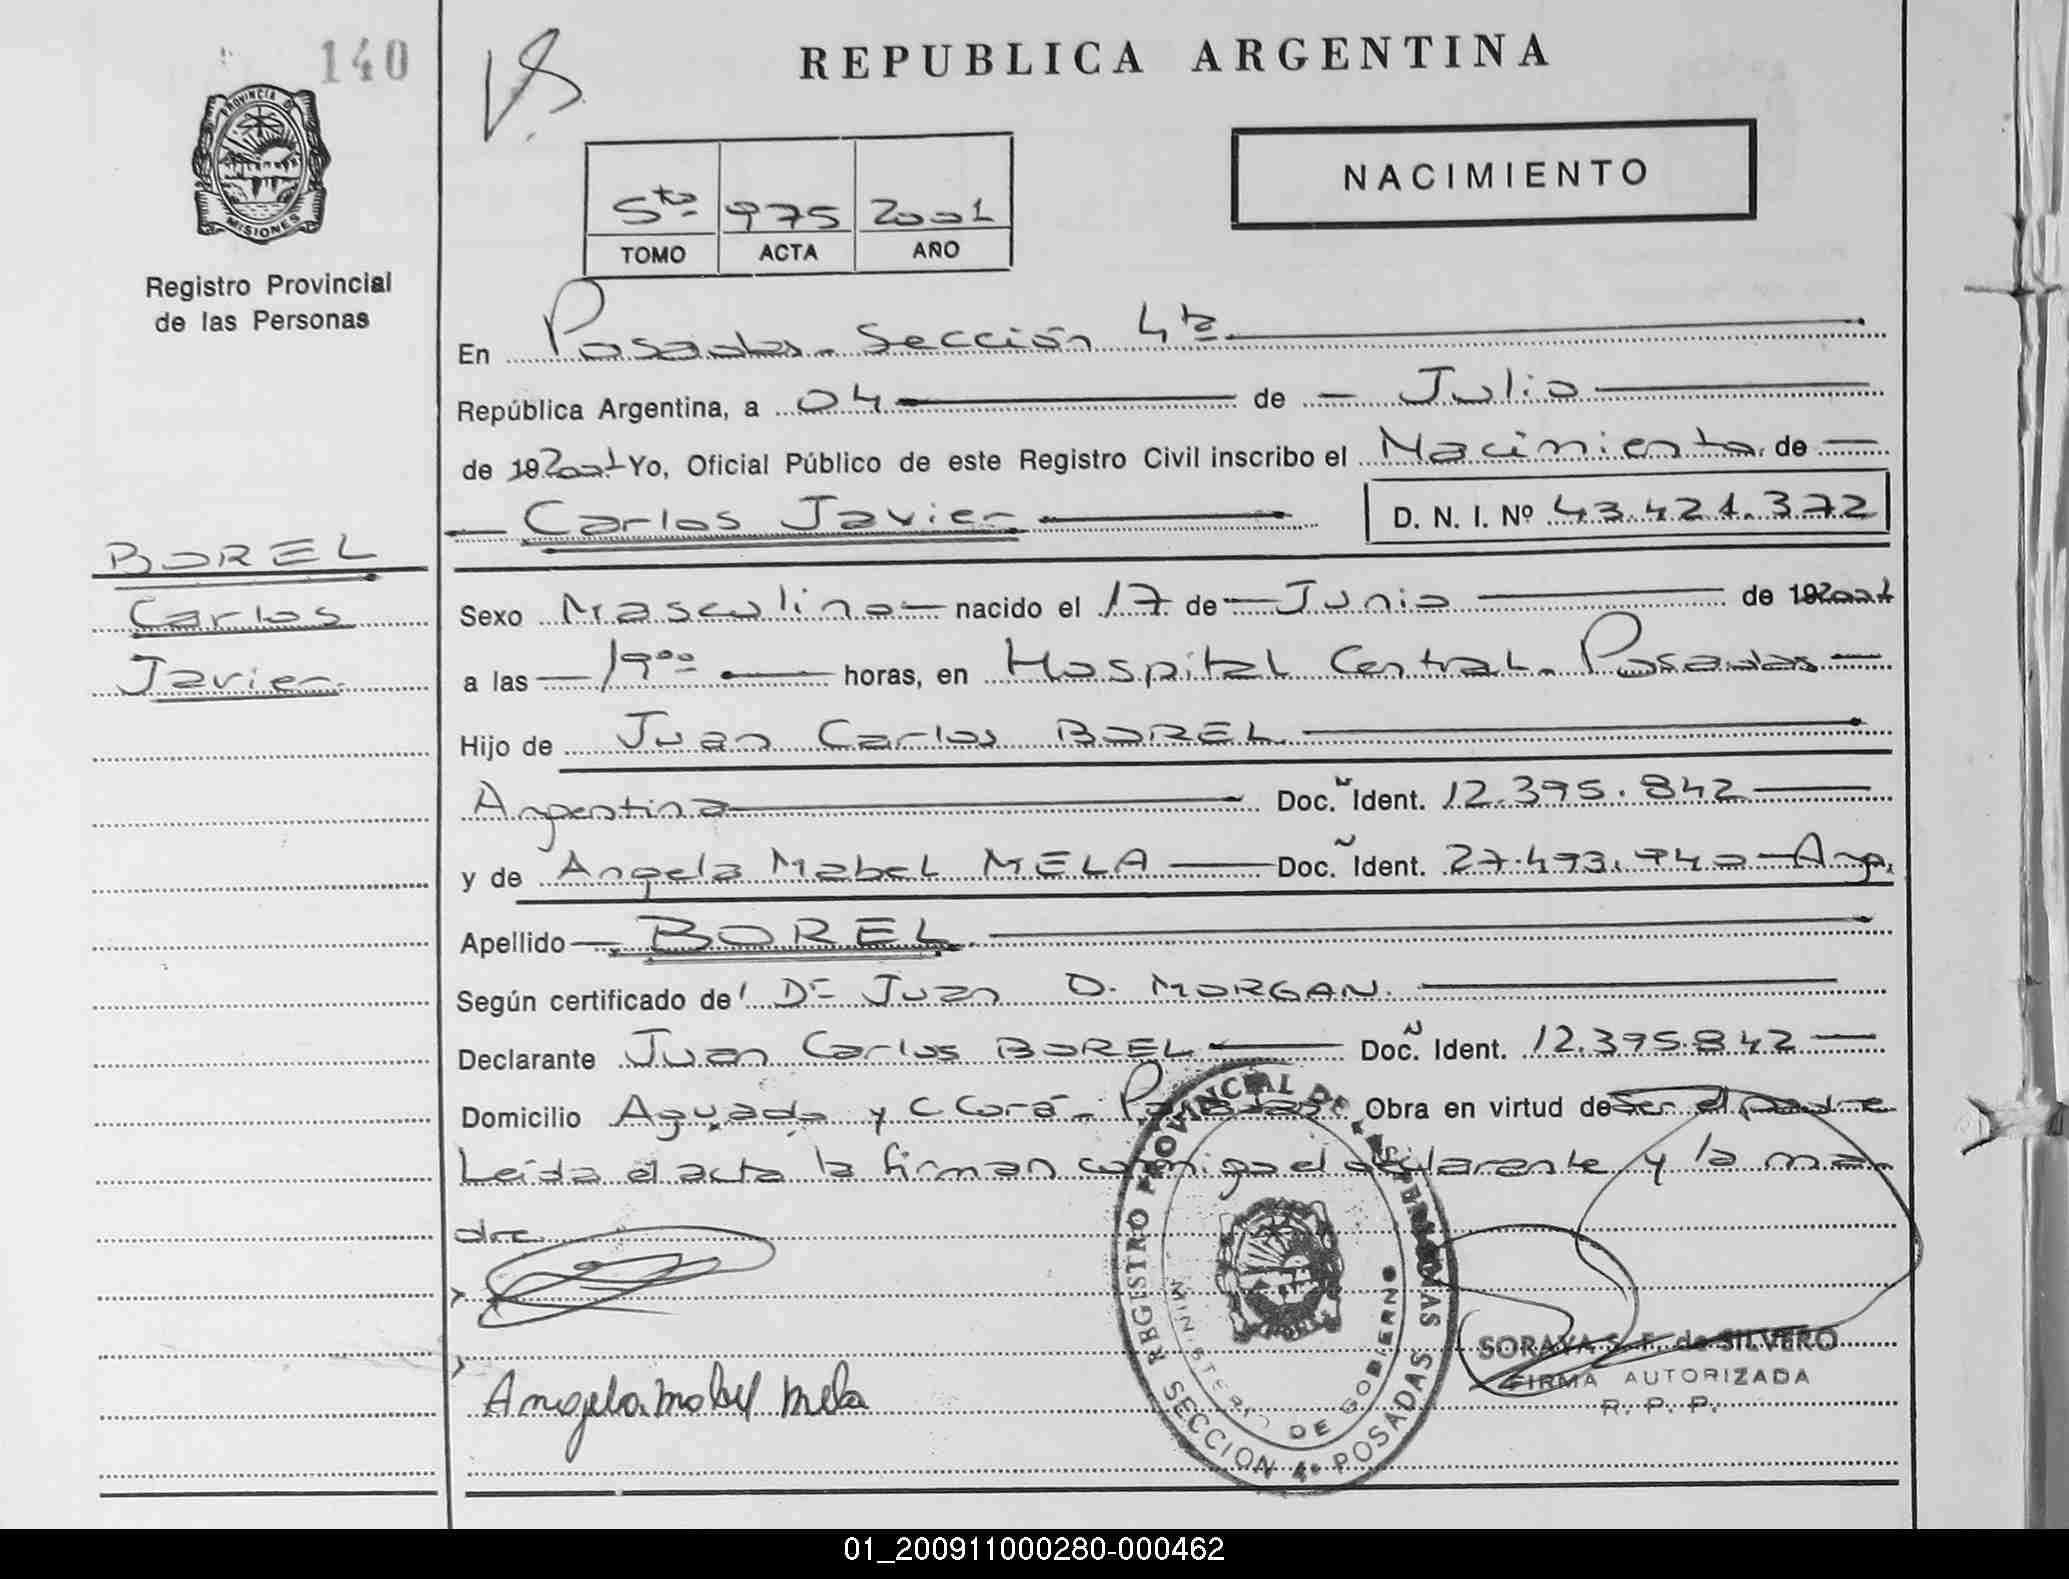 140
PROVINCIA DE
MISIONES
Registro Provincial
de las Personas
REPUBLICA ARGENTINA
NACIMIENTO
5to 975 2001
TOMO ACTA AÑO
En Posadas - Sección 4ta
República Argentina, a 04 de Julio
de 192001 Yo, Oficial Público de este Registro Civil inscribo el Nacimiento de
Carlos Javier D. N. I. Nº 43.421.372
BOREL
Carlos
Javier
Sexo Masculino nacido el 17 de Junio de 192001
a las 19⁰⁰ horas, en Hospital Central - Posadas
Hijo de Juan Carlos BOREL
Argentina Doc. Ident. 12.395.842
y de Angela Mabel MELA Doc. Ident. Arg.
Apellido BOREL
Según certificado de Dr Juan O. MORGAN.
Declarante Juan Carlos BOREL Doc. Ident. 12.395.842
Domicilio Aguado y C Corá - Posadas Obra en virtud de ser el padre
Leída el acta la firman conmigo el declarante y la ma-
dre
Angela Mabel Mela
REGISTRO PROVINCIAL DE LAS PERSONAS
MINISTERIO DE GOBIERNO
SECCION 4ª POSADAS
SORAYA S. F. de SILVERO
FIRMA AUTORIZADA
R. P. P.
01_200911000280-000462